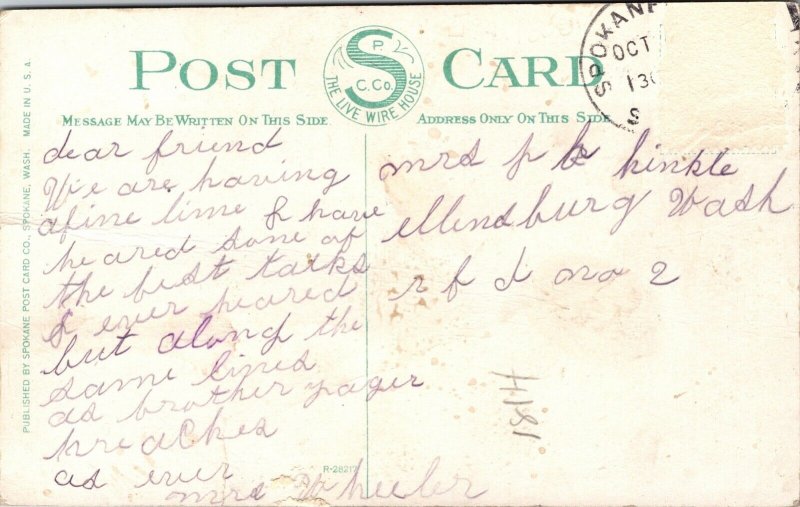 POST CARD
S
P.
C. Co.
THE LIVE WIRE HOUSE
MESSAGE MAY BE WRITTEN ON THIS SIDE
ADDRESS ONLY ON THIS SIDE
SPOKANE
OCT
130
S
PUBLISHED BY SPOKANE POST CARD CO., SPOKANE, WASH. MADE IN U. S. A.
dear friend
We are having
a fine time I have
heared some of
the best talks
I ever heared
but along the
same lines
as brother yager
preaches
as ever
mrs Wheeler
mrs p hinkle
ellensburg Wash
r f d no 2
H181
R-28217